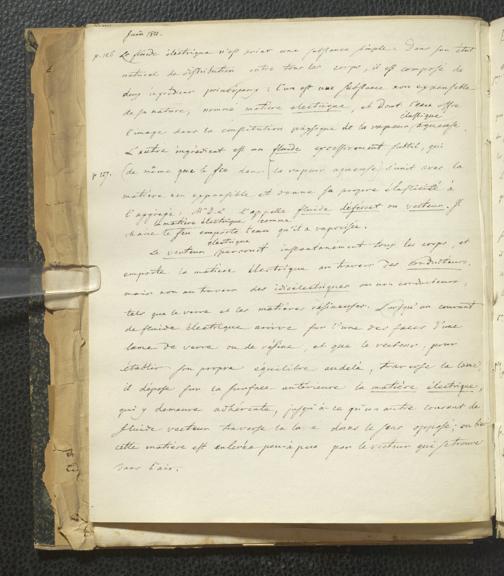 Juin 1811.
p. 126 Le fluide électrique n'est point une substance simple. Dans son état
naturel de distribution entre tous les corps, il est composé de
deux ingrédiens principaux: l'un est une substance non expansible
de sa nature, nommée matière électrique, et dont l'eau offre
élastique
l'image dans la constitution physique de la vapeur aqueuse.
L'autre ingrédient est un fluide excessivement subtil, qui
p. 127. (de même que le feu dans la vapeur aqueuse) s'unit avec la
matière non expansible et donne sa propre élasticité à
l'aggrégé; Mr. D.L. l'appelle fluide déferent ou vecteur. Il
la matière électrique comme
charie le feu emporte l'eau qu'il a vaporisée.
électrique
Le vecteur parcourt instantanément tous les corps, et
emporte la matière électrique au travers des conducteurs,
mais non au travers des idioélectriques ou non conducteurs,
tels que le verre et les matières résineuses. Lorsqu'un courant
de fluide électrique arrive sur l'une des faces d'une
lame de verre ou de résine, et que le vecteur, pour
établir son propre équilibre au delà, traverse la lame,
il dépose sur la surface antérieure la matière électrique,
qui y demeure adhérente, jusqu'à ce qu'un autre courant de
fluide vecteur traverse la lame dans le sens opposé; ou bien
cette matière est enlevée peu à peu par le vecteur qui se trouve
dans l'air.